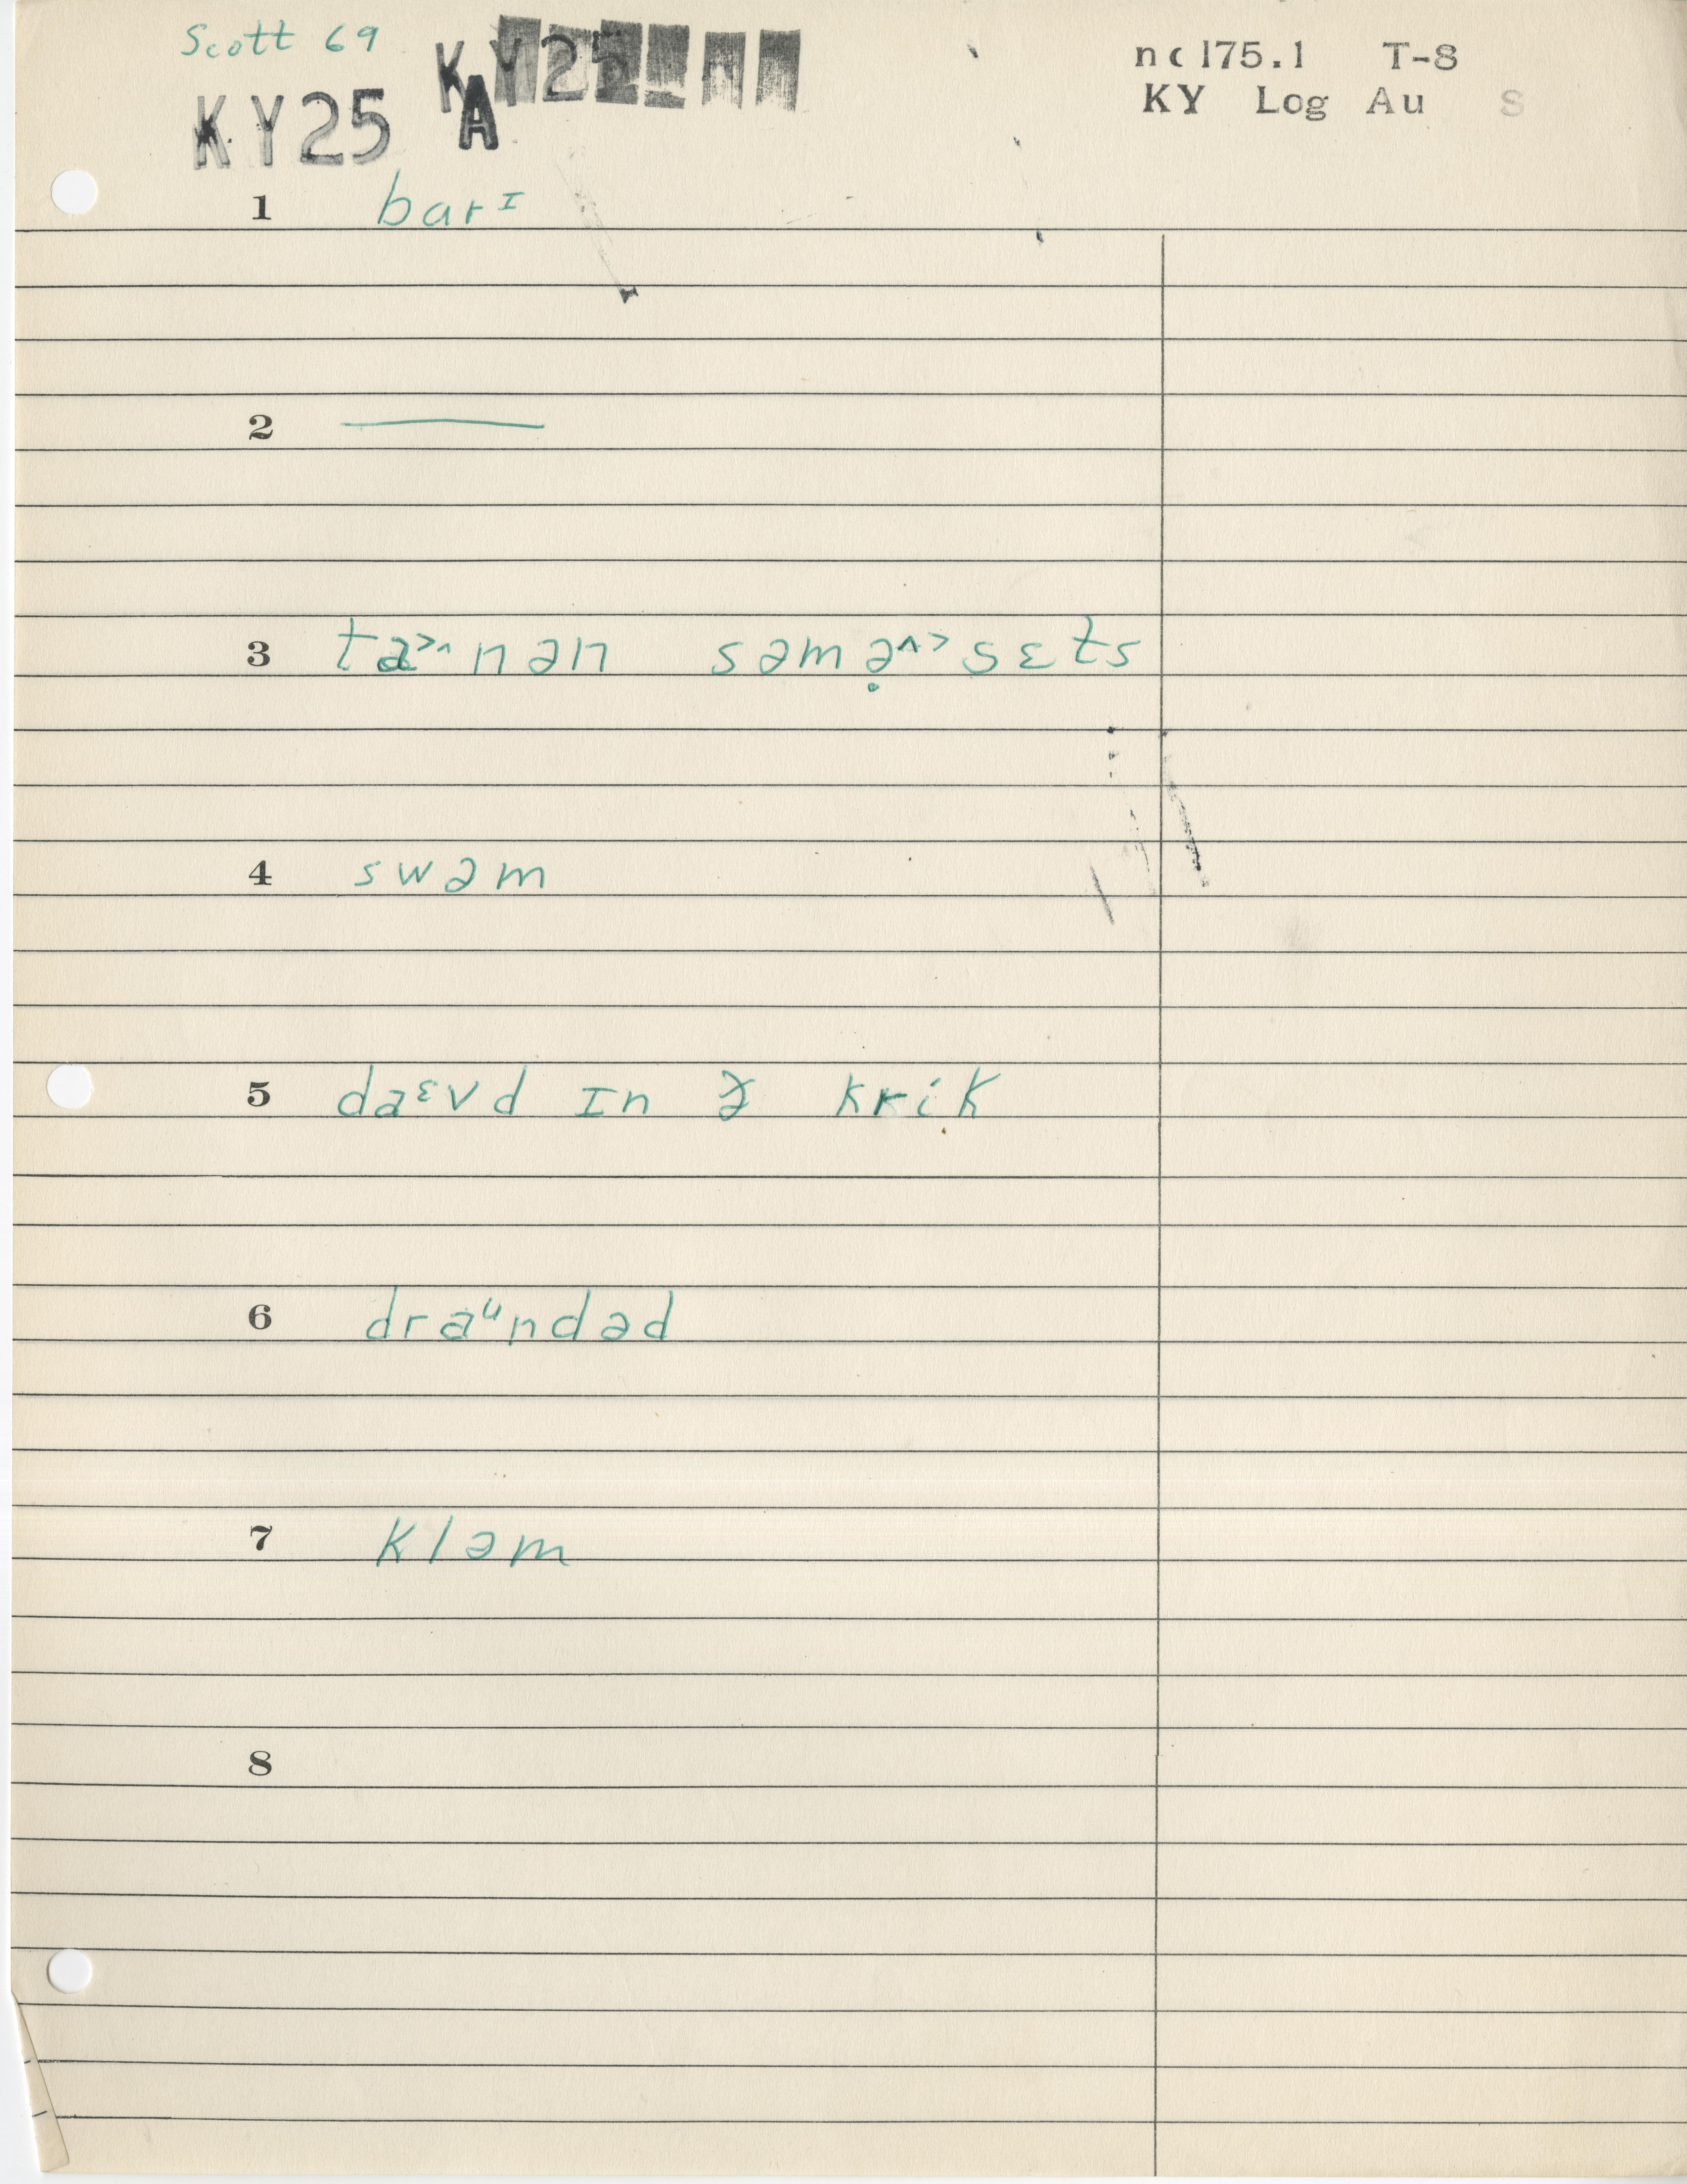 Scott 69
KY25
KY25 A
nc175.1 T-8
KY Log Au S
1 barɪ
2 ———
3 ta˃˄nən səmə̣˄˃sɛts
4 swəm
5 daᵋvd ɪn ə krik
6 draᵘndəd
7 kləm
8